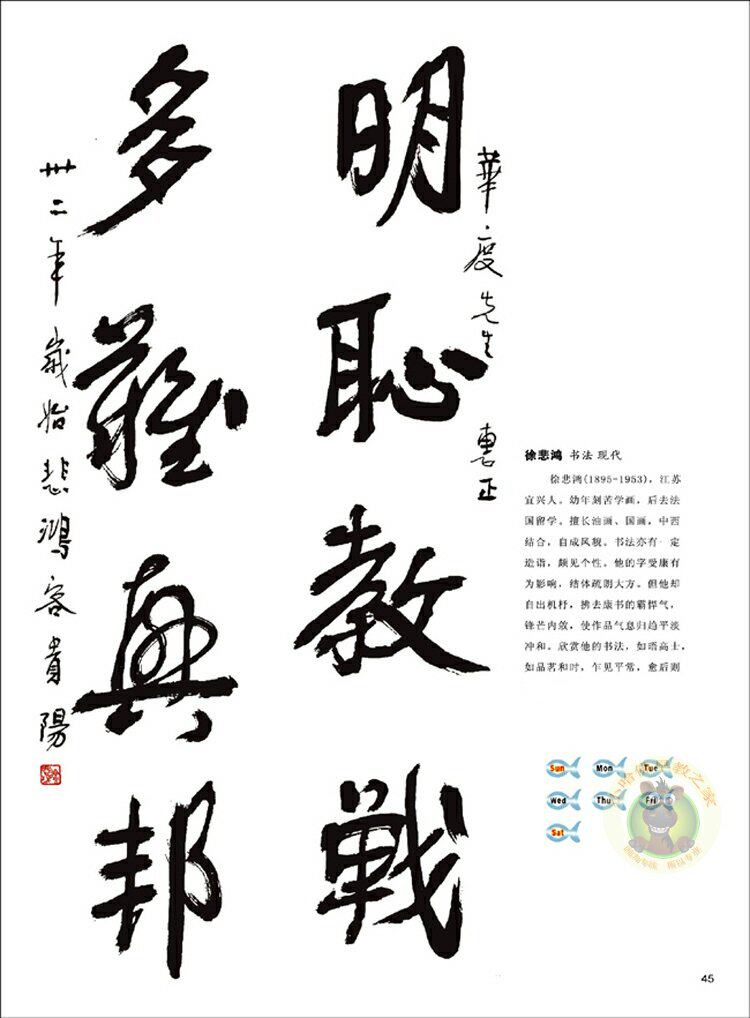 華度先生 惠正
明恥教戰
多難興邦
卅二年歲始悲鴻客貴陽
徐悲鸿 书法 现代
徐悲鸿(1895-1953)，江苏
宜兴人。幼年刻苦学画，后去法
国留学。擅长油画、国画，中西
结合，自成风貌。书法亦有一定
造诣，颇见个性。他的字受康有
为影响，结体疏朗大方。但他却
自出机杼，拂去康书的霸悍气，
锋芒内敛，使作品气息归趋平淡
冲和。欣赏他的书法，如晤高士，
如品茗和时，乍见平常，愈后则
Sun Mon Tue
Wed Thu Fri
Sat
教之家
45